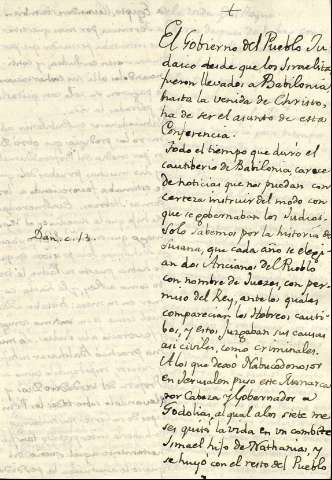 +
El Gobierno del Pueblo Ju
daico desde que los Israelitas
fueron llevados a Babilonia
hasta la venida de Christo,
ha de ser el asunto de esta
Conferencia.
Todo el tiempo que duró el
cautiberio de Babilonia, carece
de noticias que nos puedan con
certeza instruir del modo con
que se gobernaban los Judios.
Solo sabemos por la historia de
Dan. c. 13.
Susana, que cada año se elegi
an dos Ancianos del Pueblo
con nombre de Juezes, con per
miso del Rey, ante los quales
comparecian los Hebreos cauti
bos, y estos juzgaban sus causas
asi civiles, como criminales.
A los que dexó Nabucodonosor
en Jerusalen puso este Monarca
por Cabeza y Gobernador a
Godolias, al qual a los siete me
ses quitó la vida en un combite
Ismael hijo de Nathanias, y
se huyó con el resto del Pueblo